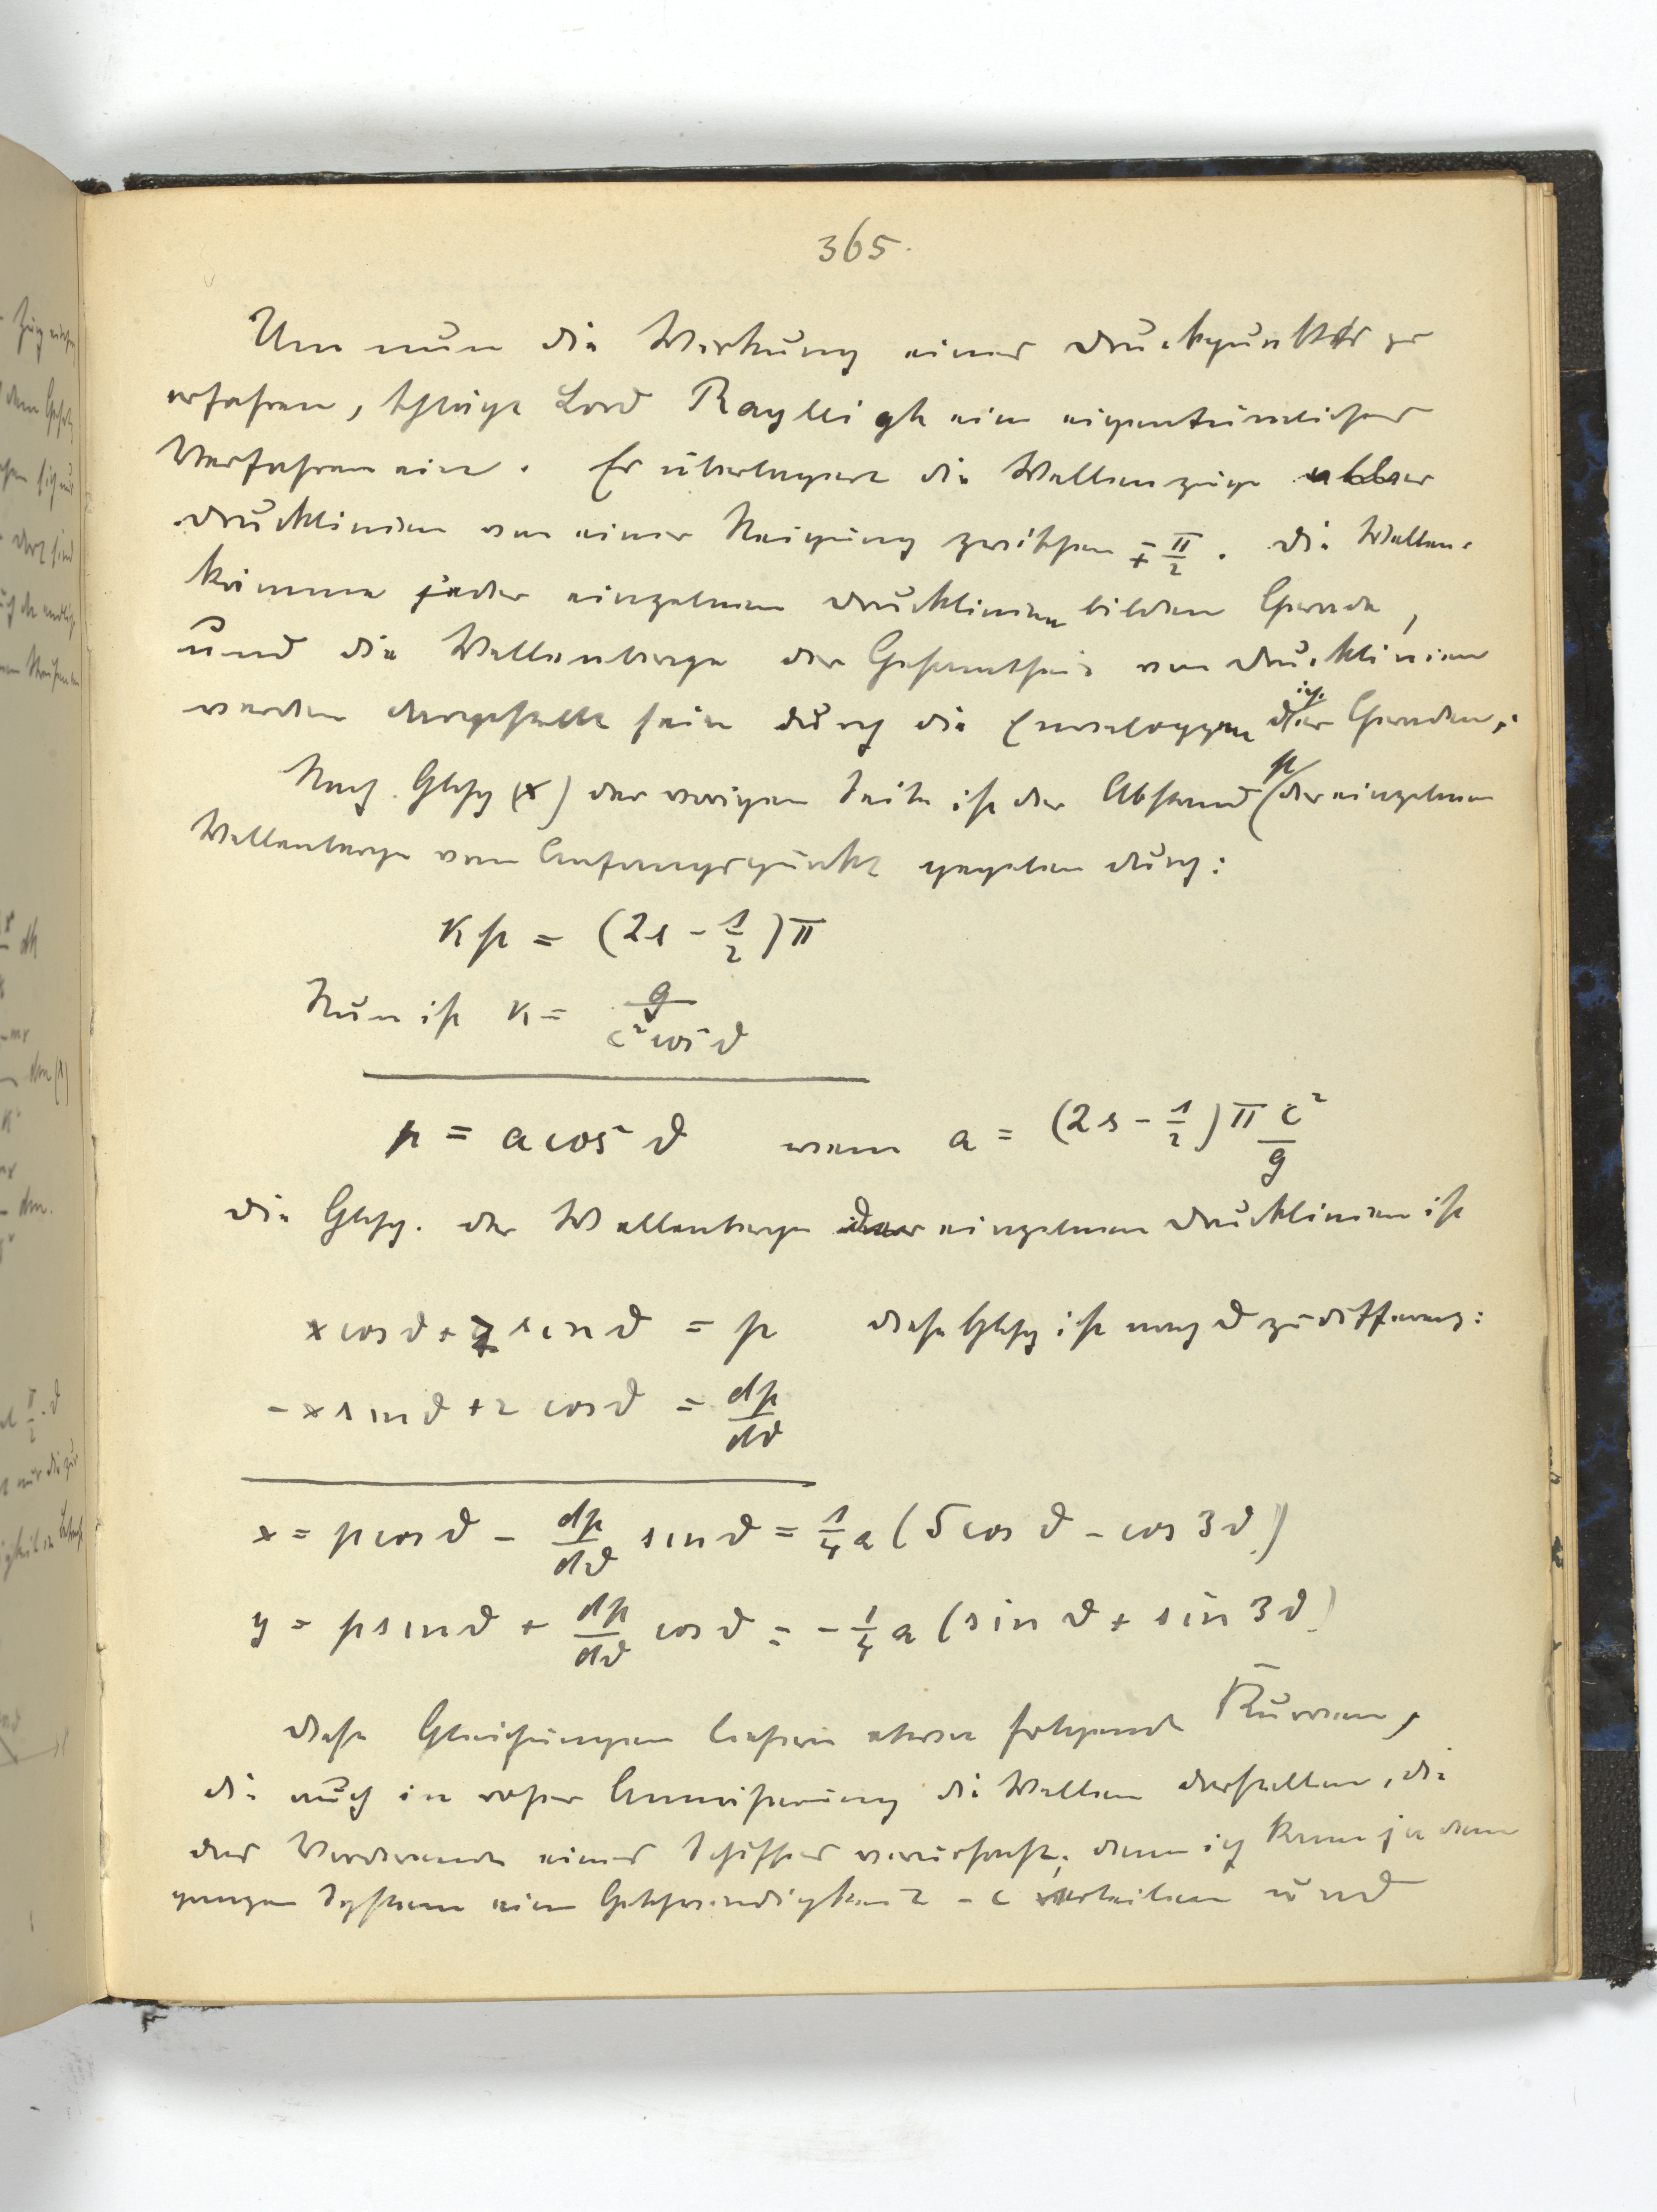 365.
Um nun die Wirkung eines Druckpunktes zu
erfahren, schlägt Lord Raylleigh ein eigentümliches
Verfahren ein. Er überlagert die Wellenzüge aller
Drucklinien von einer Neigung zwischen ∓ π/2. Die Wellen-
kämme jeder einzelnen Drucklinien bilden Gerade,
und die Wellenberge der Gesamtheit von Drucklinien
werden dargestellt sein durch die Enveloppen dieser Geraden.
Nach Glchg (x) der vorigen Seite ist der Abstand p der einzelnen
Wellenberge vom Anfangspunkt gegeben durch:
κ p = (2s - 1/2) π
Nun ist κ = g / c² cos² ϑ
p = a cos² ϑ wenn a = (2s - 1/2) π c²/g
Die Glchg. der Wellenberge der einzelnen Drucklinien ist
x cos ϑ + z sin ϑ = p diese Glchg ist nach ϑ zu differenz:
- x sin ϑ + z cos ϑ = dp/dϑ
x = p cos ϑ - dp/dϑ sin ϑ = 1/4 a (5 cos ϑ - cos 3ϑ)
y = p sin ϑ + dp/dϑ cos ϑ = - 1/4 a (sin ϑ + sin 3ϑ)
Diese Gleichungen liefern etwa folgende Kurven,
die auch in roher Annäherung die Wellen darstellen, die
das Vorderende eines Schiffes verursacht; denn ich kann ja dem
ganzen System eine Geschwindigkeit - c erteilen und